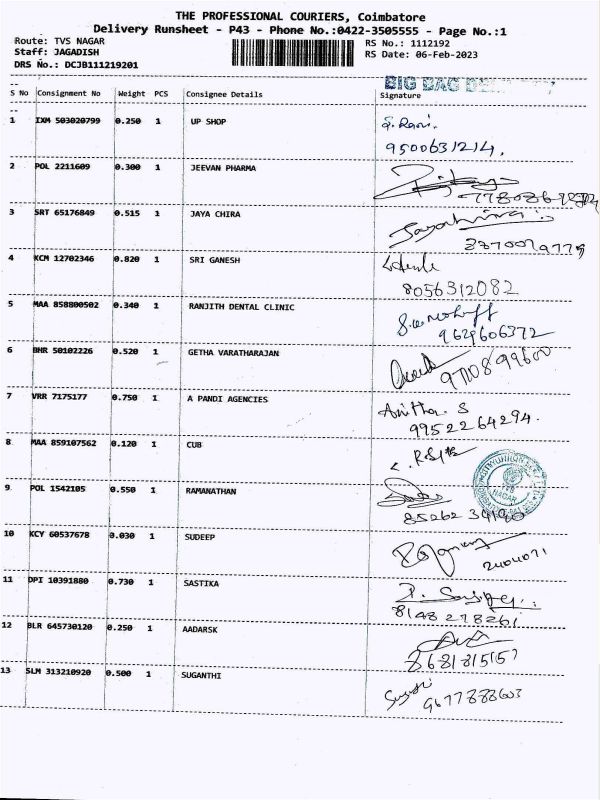 THE PROFESSIONAL COURIERS, Coimbatore
Delivery Runsheet - P43 - Phone No.:0422-3505555 - Page No.:1
Route: TVS NAGAR RS No.: 1112192
Staff: JAGADISH RS Date: 06-Feb-2023
DRS No.: DCJB111219201
BIG BAG
S No Consignment No Weight PCS Consignee Details Signature
1 IXM 503020799 0.250 1 UP SHOP
9500631214.
2 POL 2211609 0.300 1 JEEVAN PHARMA
3 SRT 65176849 0.515 1 JAYA CHIRA
4 KCM 12702346 0.820 1 SRI GANESH
8056312082
5 MAA 858800502 0.340 1 RANJITH DENTAL CLINIC
9629606372
6 BHR 50102226 0.520 1 GETHA VARATHARAJAN
7 VRR 7175177 0.750 1 A PANDI AGENCIES
Anitha S
9952264294.
8 MAA 859107562 0.120 1 CUB
9 POL 1542105 0.550 1 RAMANATHAN
TVS
NAGAR
10 KCY 60537678 0.030 1 SUDEEP
11 DPI 10391880 0.730 1 SASTIKA
8148278261
12 BLR 645730120 0.250 1 AADARSK
13 SLM 313210920 0.500 1 SUGANTHI
9677888603